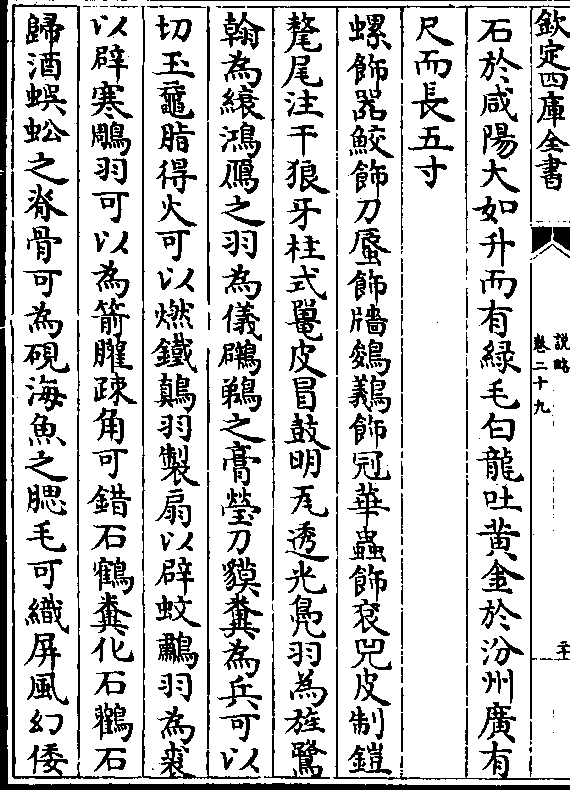 欽定四庫全書
說略
卷二十九
石於咸陽大如升而有緑毛白龍吐黄金於汾州廣有
尺而長五寸
螺飾器鮫飾刀蜃飾牆鵕鸃飾冠華蟲飾袞兕皮制鎧
氂尾注干狼牙柱式鼉皮冒鼓明瓦透光鳬羽為旌鷺
翰為緌鴻鴈之羽為儀鸊鵜之膏瑩刀貘糞為兵可以
切玉龜脂得火可以燃鐵鷏羽製扇以辟蚊鸘羽為裘
以辟寒鵰羽可以為箭臛疎角可錯石鶴糞化石鸛石
歸酒蜈蚣之脊骨可為硯海魚之腮毛可織屏風幻倭